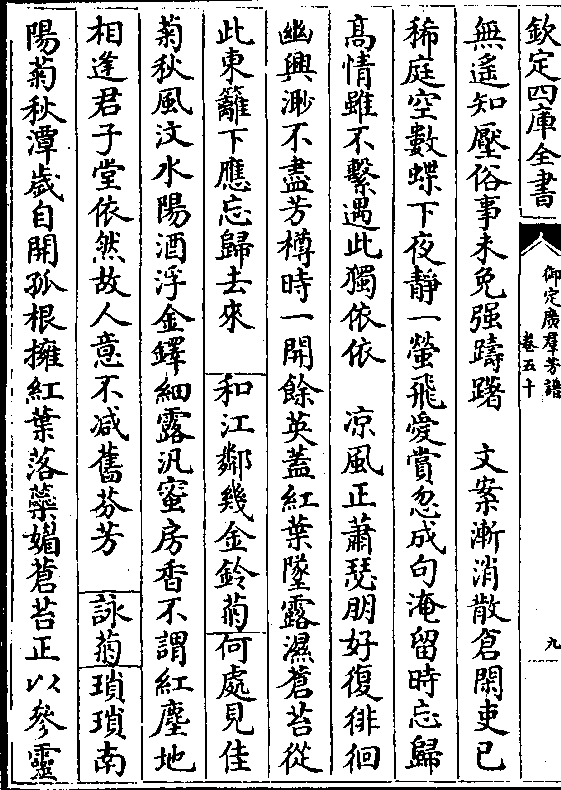 欽定四庫全書
御定廣羣芳譜
卷五十
九
無遥知壓俗事未免强躊躇　文案漸消散倉閑吏已
稀庭空數蝶下夜靜一螢飛愛賞忽成句淹留時忘歸
髙情雖不繫遇此獨依依　凉風正蕭瑟朋好復徘徊
幽興渺不盡芳樽時一開餘英蓋紅葉墜露濕蒼苔從
此東籬下應忘歸去來　和江鄰幾金鈴菊何處見佳
菊秋風汶水陽酒浮金鐸細露汎蜜房香不謂紅塵地
相逢君子堂依然故人意不减舊芬芳　詠菊瑣瑣南
陽菊秋潭歲自開孤根擁紅葉落蘂媚蒼苔正以參靈